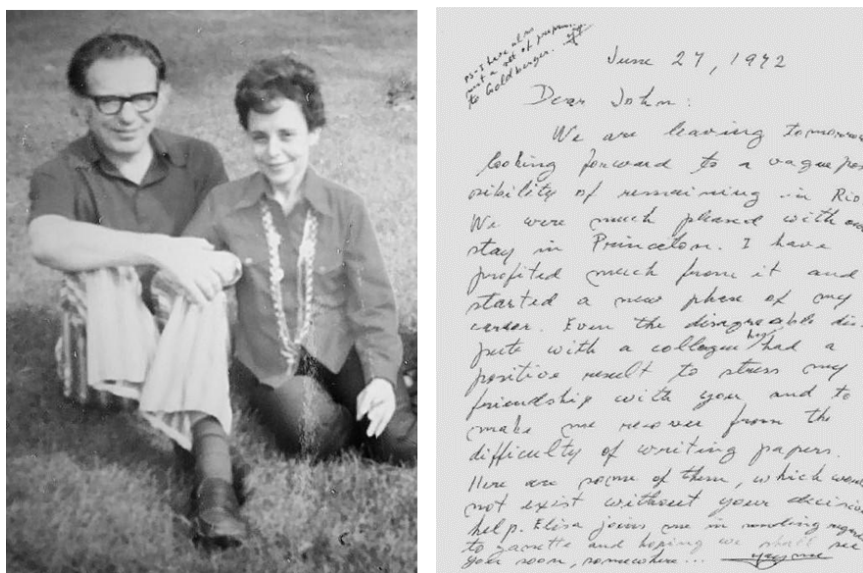 PS. I have also
sent a set of preprints
to Goldberger.
June 27, 1972
Dear John:
We are leaving tomorrow
looking forward to a vague pos
sibility of remaining in Rio
We were much pleased with our
stay in Princeton. I have
profited much from it and
started a new phase of my
career. Even the disagreeable dis-
pute with a colleague has had a
positive result to stress my
friendship with you and to
make me recover from the
difficulty of writing papers.
Here are some of them, which would
not exist without your decisive
help. Elisa joins me in sending regards
to Janette and hoping we shall see
you soon, somewhere... Jayme